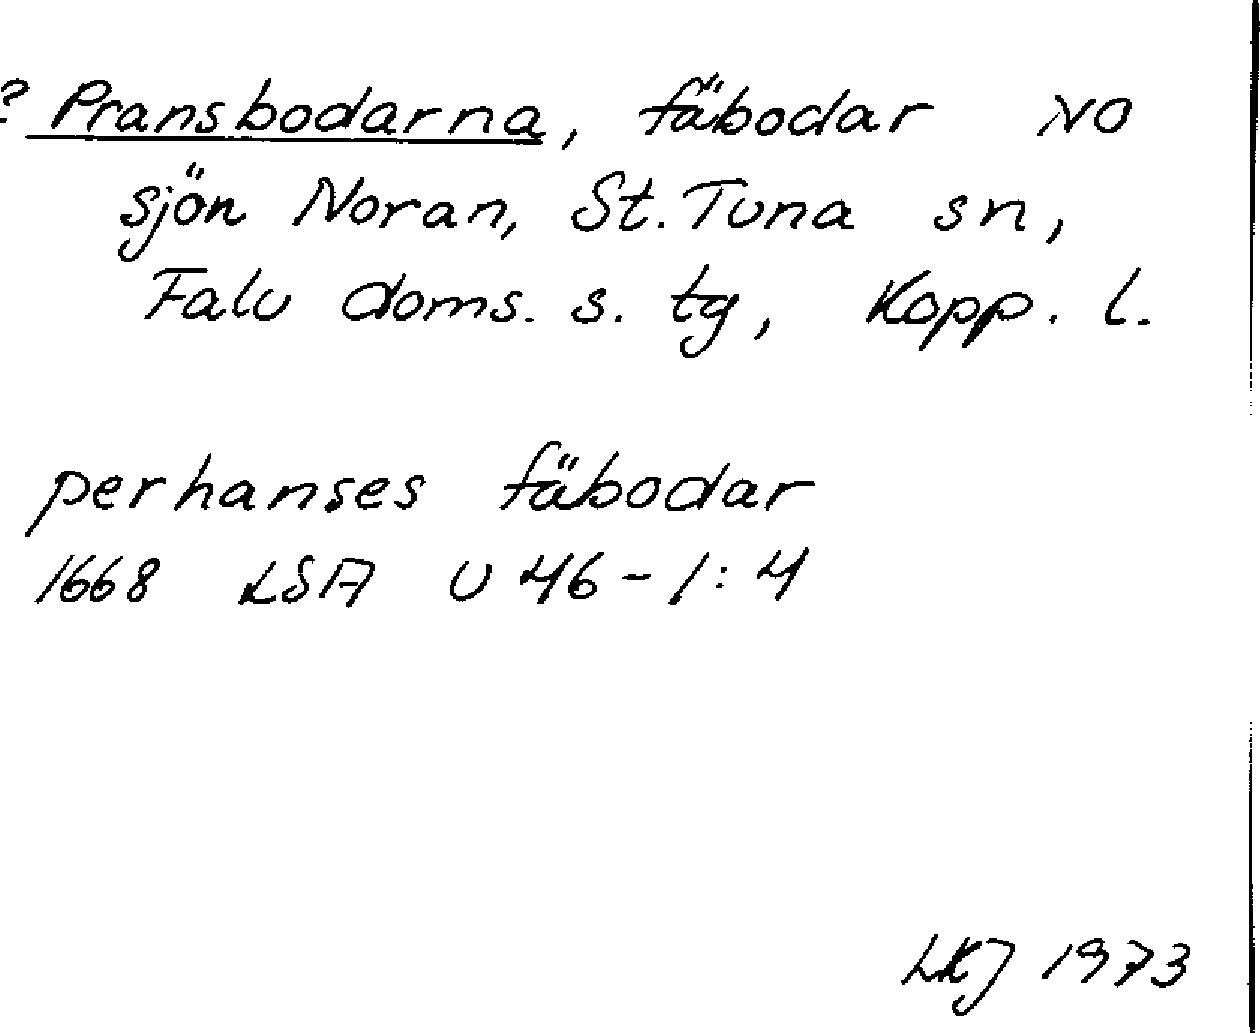 ? Pransbodarna, fäbodar NO
sjön Noran, St. Tuna sn,
Falu doms. s. tg, Kopp. l.
perhanses fäbodar
1668 LSA U 46 - 1:4
LKJ 1973